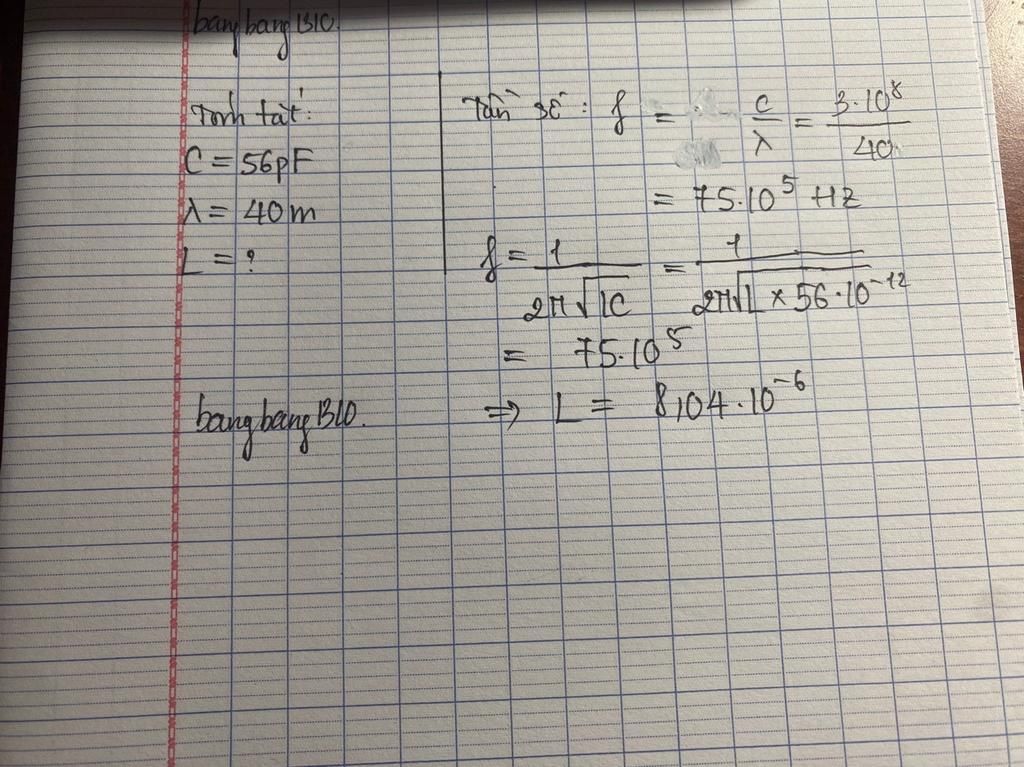 bangbang1310.
Tóm tắt:
C = 56pF
λ = 40m
L = ?
Tần số: f = c/λ = 3.10^8/40
= 75.10^5 Hz
f = 1/(2π√LC) = 1/(2π√(L × 56.10^-12))
= 75.10^5
⇒ L = 8,04.10^-6
bangbang1310.